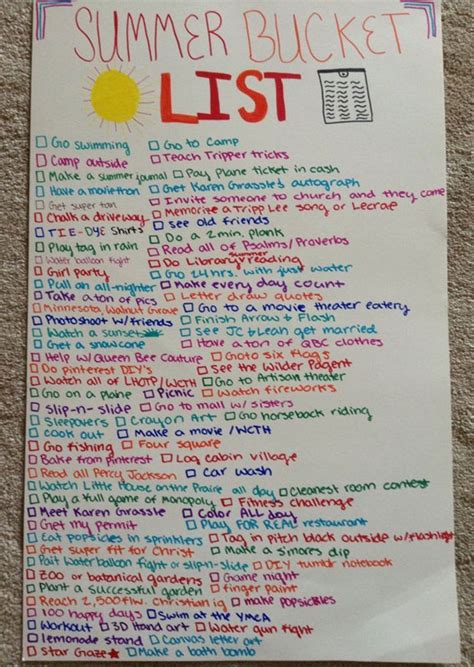 SUMMER BUCKET
LIST
Go swimming Go to Camp
Camp outside Teach Tripper tricks
Make a summer journal Pay Plane ticket in cash
Have a moviethon Get Karen Grassle's autograph
Get super tan Invite someone to church and they come
Chalk a driveway Memorise a Tripp Lee song or Lecrae
TIE-DYE shirts See old friends
Play tag in rain Do a 2 min. plank
Water balloon fight Read all of Psalms/Proverbs
Girl party Do Library summer reading
Pull an all-nighter Go 24 hrs. with just water
Take a ton of pics Make every day count
Minnesota, Walnut Grove Letter draw quotes
Photoshoot w/ friends Go to a movie theater eatery
Watch a sunset Finish Arrow & Flash
Get a snowcone See JC & Leah get married
Help w/Queen Bee Couture Have a ton of QBC clothes
Do pinterest DIY's Go to six flags
Watch all of LHOTP/WCTH See the Wilder Pagent
Go on a Plane Picnic Go to Artisan theater
Slip-n-slide Go to mall w/ sisters Watch fireworks
Sleepovers Crayon Art Go horseback riding
Cook out Make a movie /WCTH
Go fishing Four square
Bake from pinterest Log cabin village
Read all Percy Jackson Car wash
Watch Little House on the Praire all day Cleanest room contest
Play a full game of monopoly Fitness challenge
Meet Karen Grassle Color All day
Get my permit Play FOR REAL! restaurant
Eat popsicles in sprinklers Tag in pitch black outside w/flashlight
Get super fit for Christ Make a s'mores dip
Pait Water balloon fight or slip-n-slide DIY tumblr notebook
Zoo or botanical gardens Game night
Plant a successful garden finger paint
Reach 2,500 flw. Christian ig make popsickles
100 happy days Swim at the YMCA
Workout 3D Hand art Water gun fight
lemonade stand Canvas letter art
Star Gaze Make a bath bomb